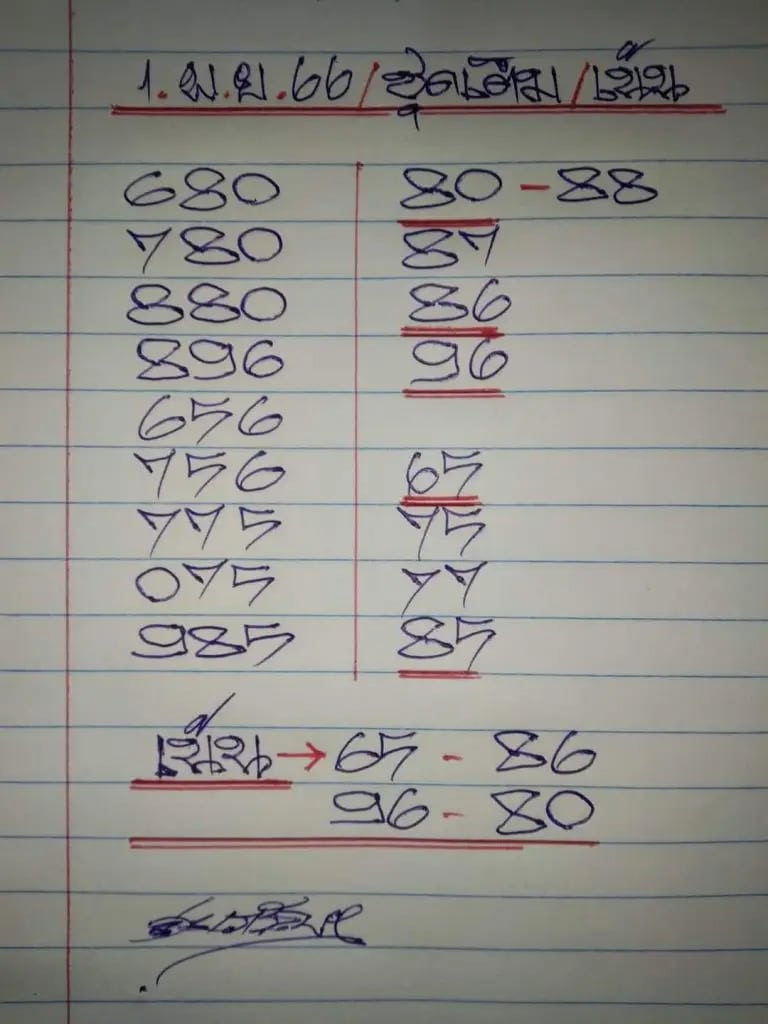 1.พ.ย.66/ชุดเติม/เน้น
680 80-88
780 87
880 86
896 96
656
756 65
775 75
075 77
985 85
เน้น→65-86
96-80